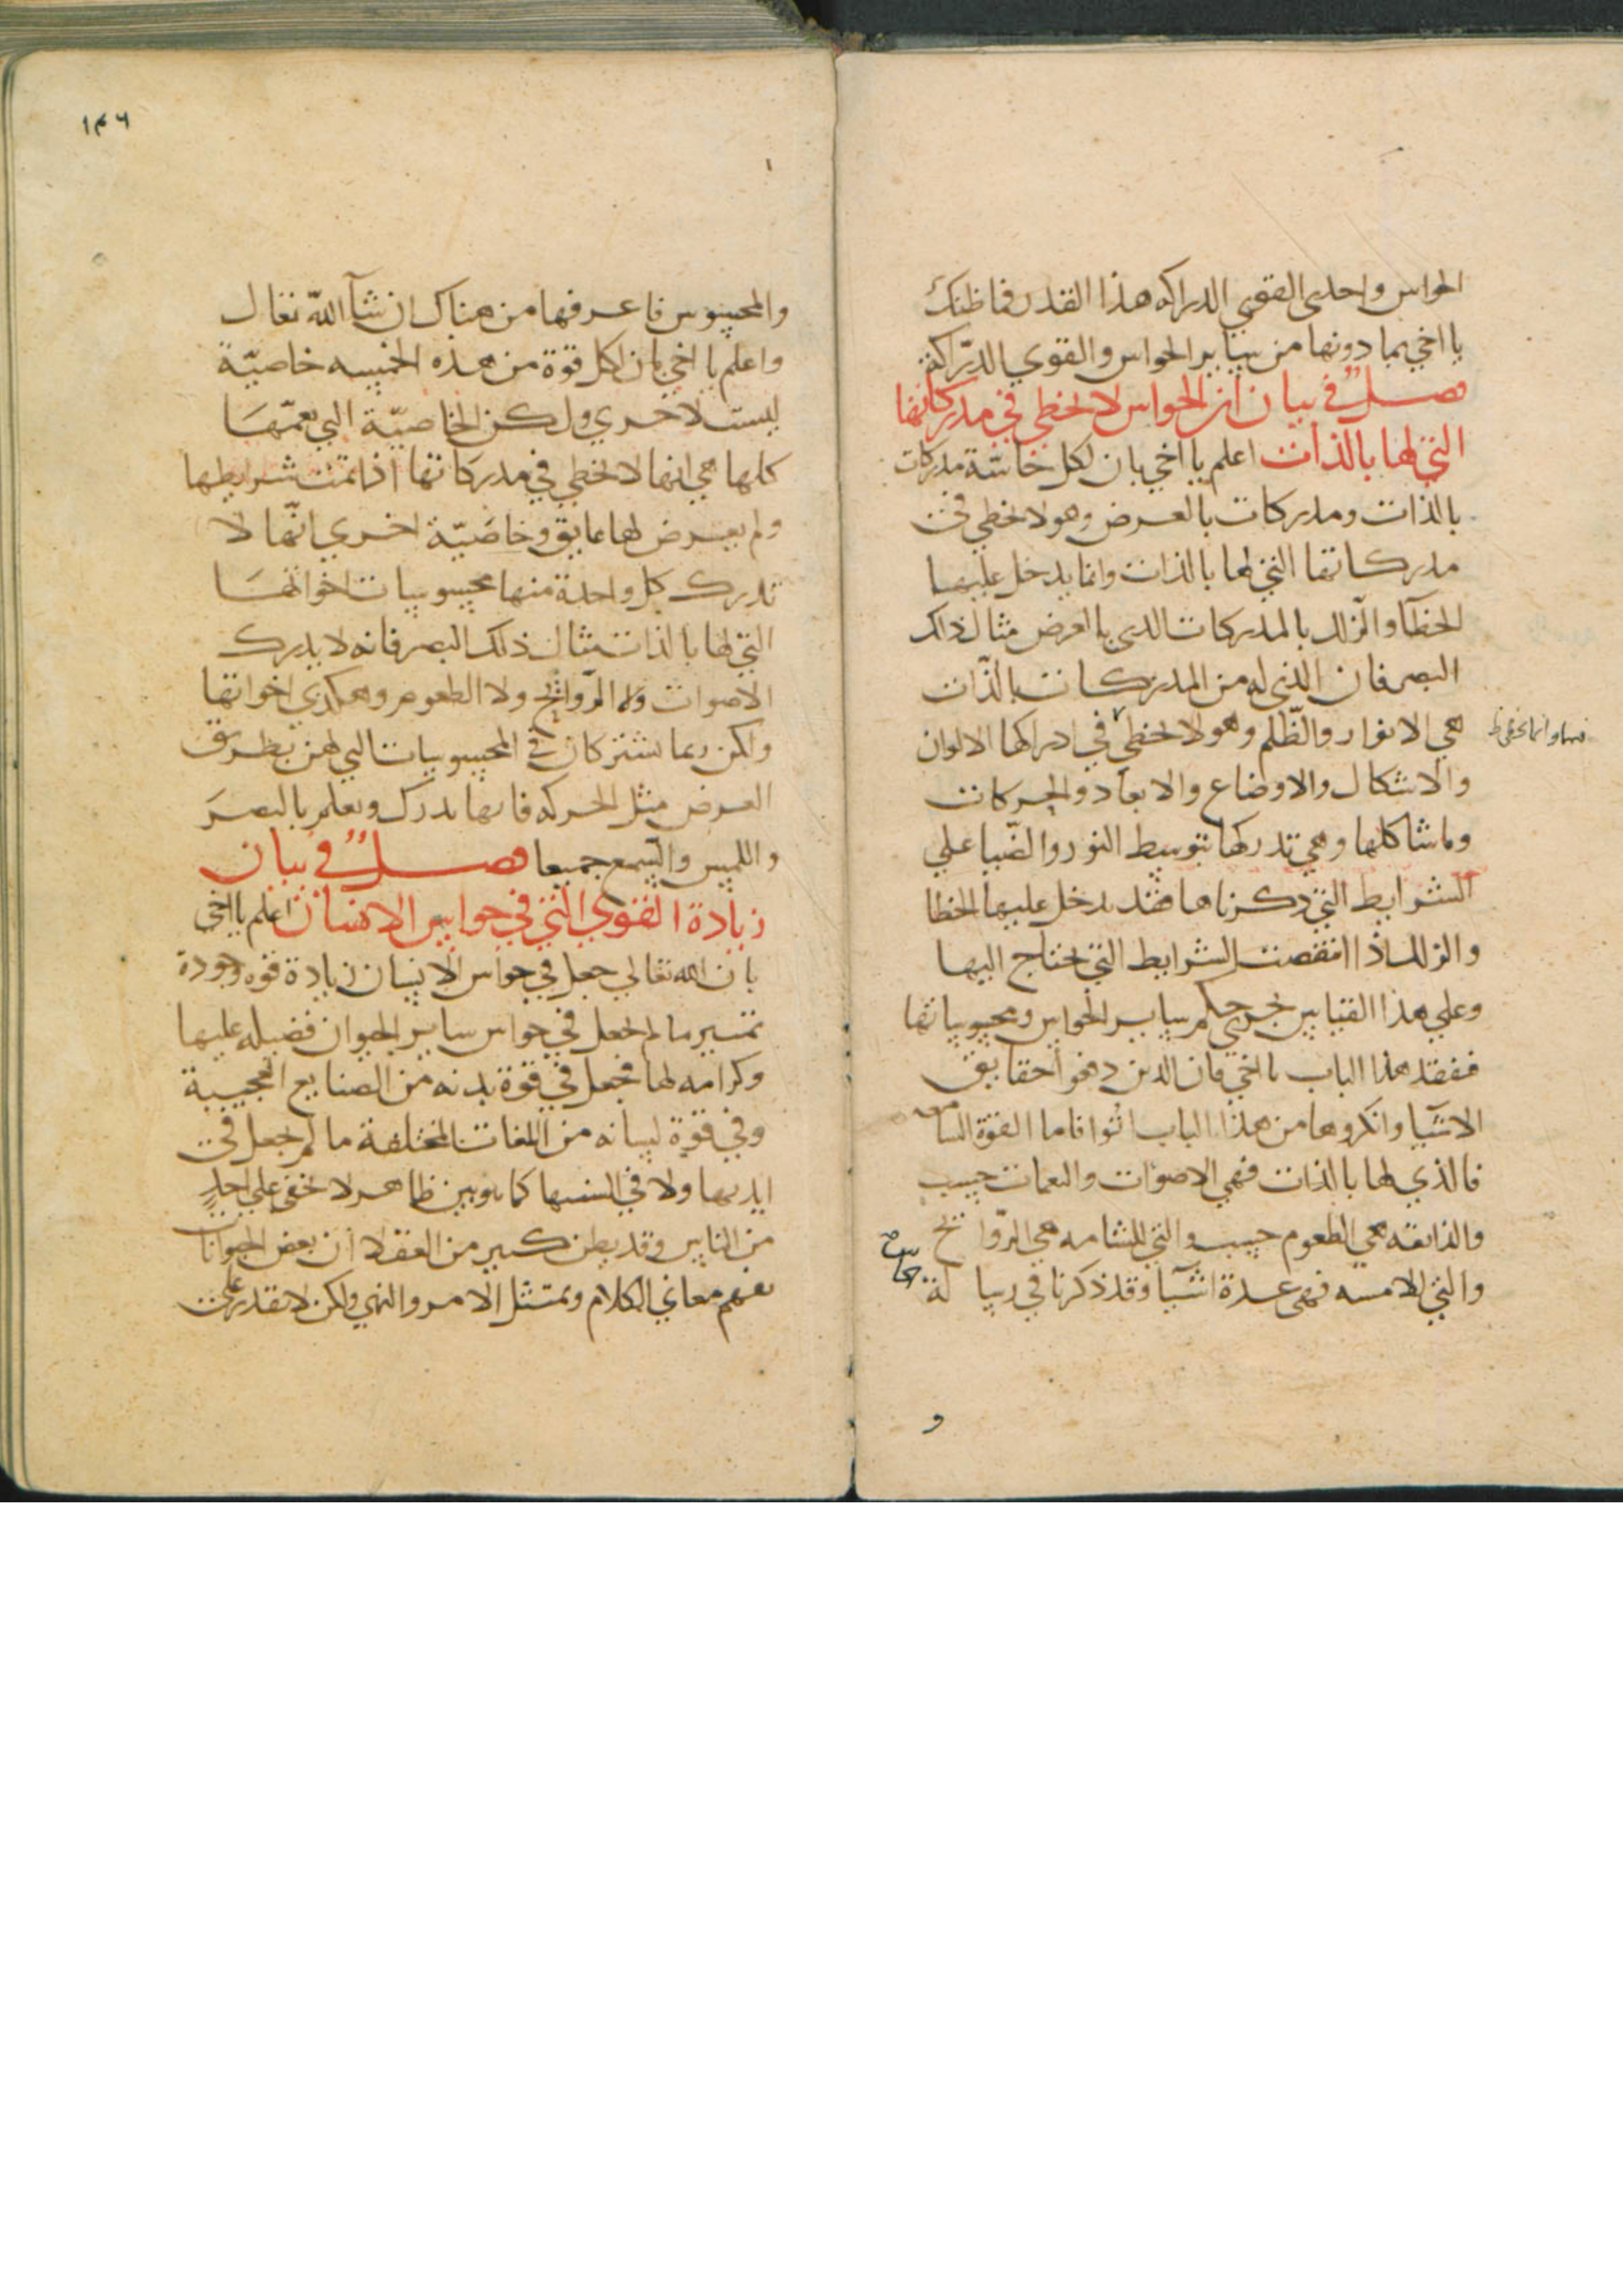 الحواس واحدى القوى الدراكه هذا القدر فما ظنك
يا اخي بما دونها من سائر الحواس والقوي الدرّاكة
فصل في بيان ان الحواس لا تخطي في مدركاتها
التي لها بالذات اعلم يا اخي بان لكل حاسّة مدركات
بالذات ومدركات بالعرض وهو لا تخطي في
مدركاتها التي لها بالذات وانما يدخل عليها
الخطآ والزلل بالمدركات الذي بالعرض مثال ذلك
البصر فان الذي له من المدركات بالذّات
هي الانوار والظّلم وهو لا تخطي في ادراكها الالوان
فيها وانما تخطي
والاشكال والاوضاع والابعاد والحركات
وما شاكلها وهي تدركها بتوسط النور والضّيا علي
الشرايط التي ذكرناها فقد يدخل عليها الخطا
والزلل اذا انتقصت الشرايط التي تحتاج اليها
وعلي هذا القياس تجري حكم ساير الحواس ومحسوساتها
فتفقد هذا الباب يا اخي فان الذين دفعوا حقايق
الاشيا وانكروها من هذا الباب اتوا فاما القوة السامعه
فالذي لها بالذات فهي الاصوات والنغمات حسب
والذايقه هي الطعوم حسب والتي للشامه هي الرّوائح
والتي للامسه فهي عدة اشيآ وقد ذكرنا في رسالة
الحاس
و
١٤٦
والمحسوس فاعرفها من هناك ان شآ اللّه تعال
واعلم يا اخي بان لكل قوة من هذه الخمسه خاصيّة
ليست لاخري ولكن الخاصيّة التي تعمّها
كلها هي انها لا تخطي في مدركاتها اذا تمت شرايطها
ولم يعرض لها عايق وخاصّيّة اخري انّها لا
تدرك كل واحدة منها محسوسات اخواتها
التي لها بالذات مثال ذلك البصر فانه لا يدرك
الاصوات ولا الرّوائح ولا الطعوم وهكذي اخواتها
ولكن ربما تشتركان في المحسوسات التي لهن بطريق
العرض مثل الحركه فانها تدرك وتعلم بالبصر
واللمس والسّمع جميعا فصل في بيان
زيادة القوي التي في حواس الانسان اعلم يا اخي
بان الله تعالي جعل في حواس الانسان زيادة قوه وجودة
تمييز ما لم تجعل في حواس ساير الحيوان فضيله عليها
وكرامه لها فجعل في قوة بدنه من الصنايع العجيبة
وفي قوة لسانه من اللغات المختلفة ما لم تجعل في
ايديها ولا في السنها كما هو بين ظاهر لا تخفي علي احدٍ
من الناس وقد يظن كثير من العقلا ان بعض الحيوانات
تفهم معاني الكلام وتمتثل الامر والنهي ولكن لا تقدر علي